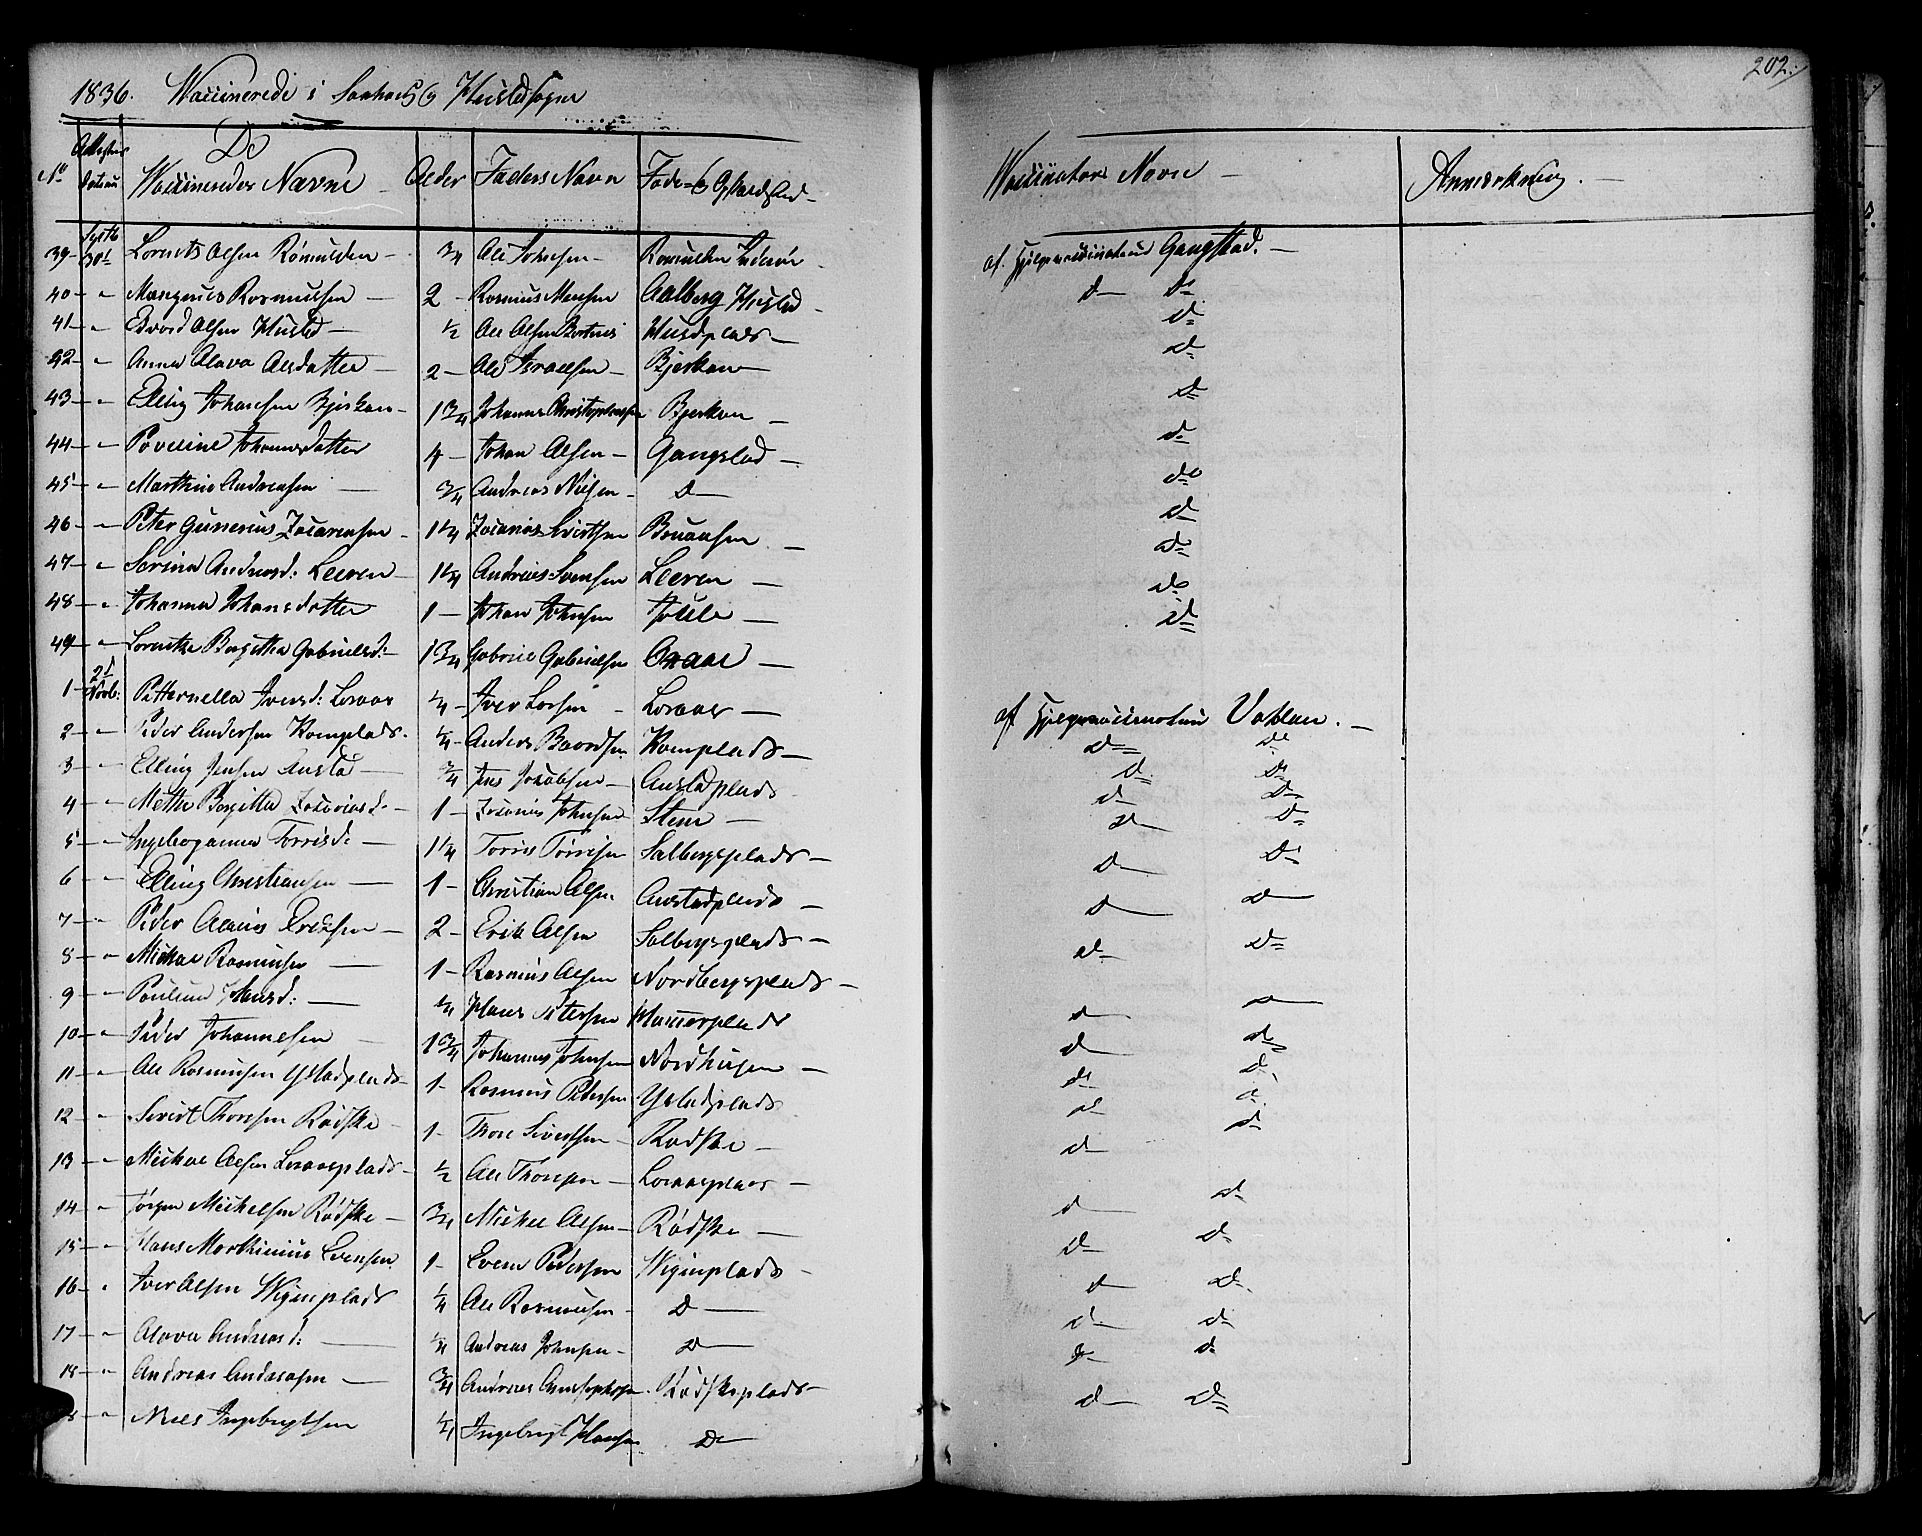 202.
1836. Waccinerede i Saxhoug og Hustad sogne
No Attestens Datum De Waccineredes Navne Alder Faders Navn Føde- og Opholdsted Waccinators Navn Anmærkning
39 Septb 30t Lorents Olsen Rømulden 3/4 Ole Johnsen Inderøe af Hjelpevaccinateur Gangstad.
40 " Mangnus Rasmusen 2 Rasmus Monsen Aalberg Hustad do do
41 " Edvard Olsen Hustad 1/2 Ole Olsen Husdplads do
42 " Anna Olava Olsdatter 2 Ole Israelsen Bjerkan do
43 " Elling Johansen Bjerkan 1 3/4 Johannes Christophersen Bjerkan do
44 " Poveline Johansdatter 4 Johan Olsen Gangstad do
45 " Marthin Andreasen 3/4 Andreas Nilsen Do do
46 " Peter Gunerius Zacariasen 1 1/4 Zacarias Sivertsen do
47 " Sorina Andreasd: Leeren 1 1/4 Andreas Svensen Leeren do
48 " Johanna Johansdatter 1 Johan Johnsen do
49 " Lorentze Bergitha Gabrielsd: 1 3/4 Gabriel Gabrielsen do
1 2d Novb: Petternella Iversd: Loraas 1/4 Iver Larsen Loraas af Hjelpevaccinateur Vablan.
2 " Peder Andersen Komplads 1/4 Anders Baardsen Komplads do do
3 " Elling Jensen Austad 3/4 Jens Jacobsen Austadplads do do
4 " Metha Bergitta Zacariasd. 1 Zacarias Johnsen Steen do do
5 " Ingeborganna Torrisd: 1 1/4 Torris Torrisen Salbergsplads do do
6 " Elling Christiansen 1 Christian Olsen Austadplads do do
7 " Peder Erichsen 2 Erik Olsen Salbergsplads do do
8 " Michal Rasmusen 1 Rasmus Olsen Nordbergsplads do do
9 " Pauline Hansd: 1/4 Hans Petersen do do
10 " Peder Johannesen 1 3/4 Johannes Johnsen Nordhusen do do
11 " Ole Rasmusen Ystadplads 1 Rasmus Pedersen Ystadplads do do
12 " Sivert Thoresen Rødske 1 Thore Sivertsen Rødske do do
13 " Mickal Olsen Loraasplads 1/2 Ole Thoresen Loraasplads do
14 " Jørgen Mickelsen Rødske 3/4 Mickel Olsen Rødske do do
15 " Hans Morthinius Evensen 1 Even Pedersen Wigenplads do do
16 " Iver Olsen Wigenplads 1/4 Ole Rasmusen Do do do
17 " Olava Andreasd: 1/4 Andreas Johnsen Do do do
18 " Andreas Andreasen 3/4 Andreas Christophersen Rødskeplads do do
" Niels Ingebrigtsen 1/4 Ingebrigt Hansen Do do do